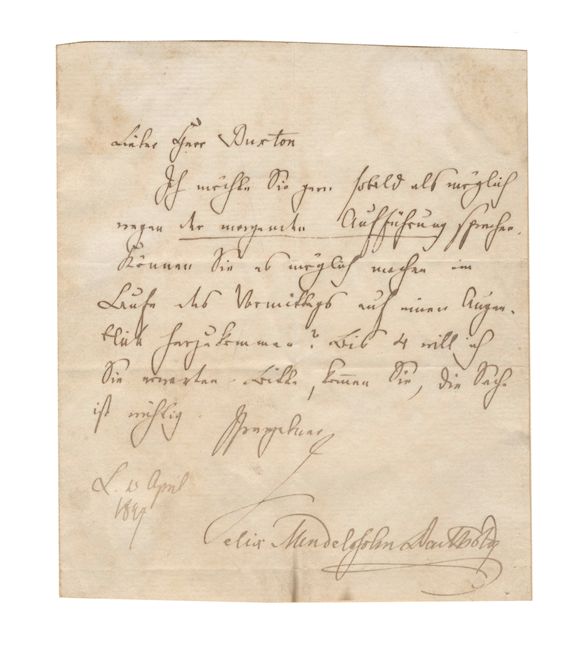 Lieber Herr Buxton
Ich möchte Sie gern sobald als möglich
wegen der morgenden Aufführung sprechen.
Können Sie es möglich machen im
Laufe des Vormittags auf einen Augen-
blick herzukommen? Bis 4 will ich
Sie erwarten. Bitte, kommen Sie, die Sache
ist wichtig.
Ihr ergebner
L. April
1847
Felix Mendelssohn Bartholdy